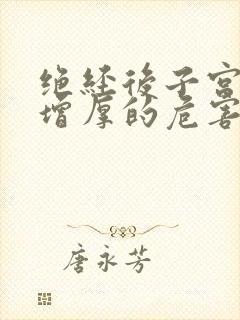 绝经後子宫
增厚的危害
唐永芳